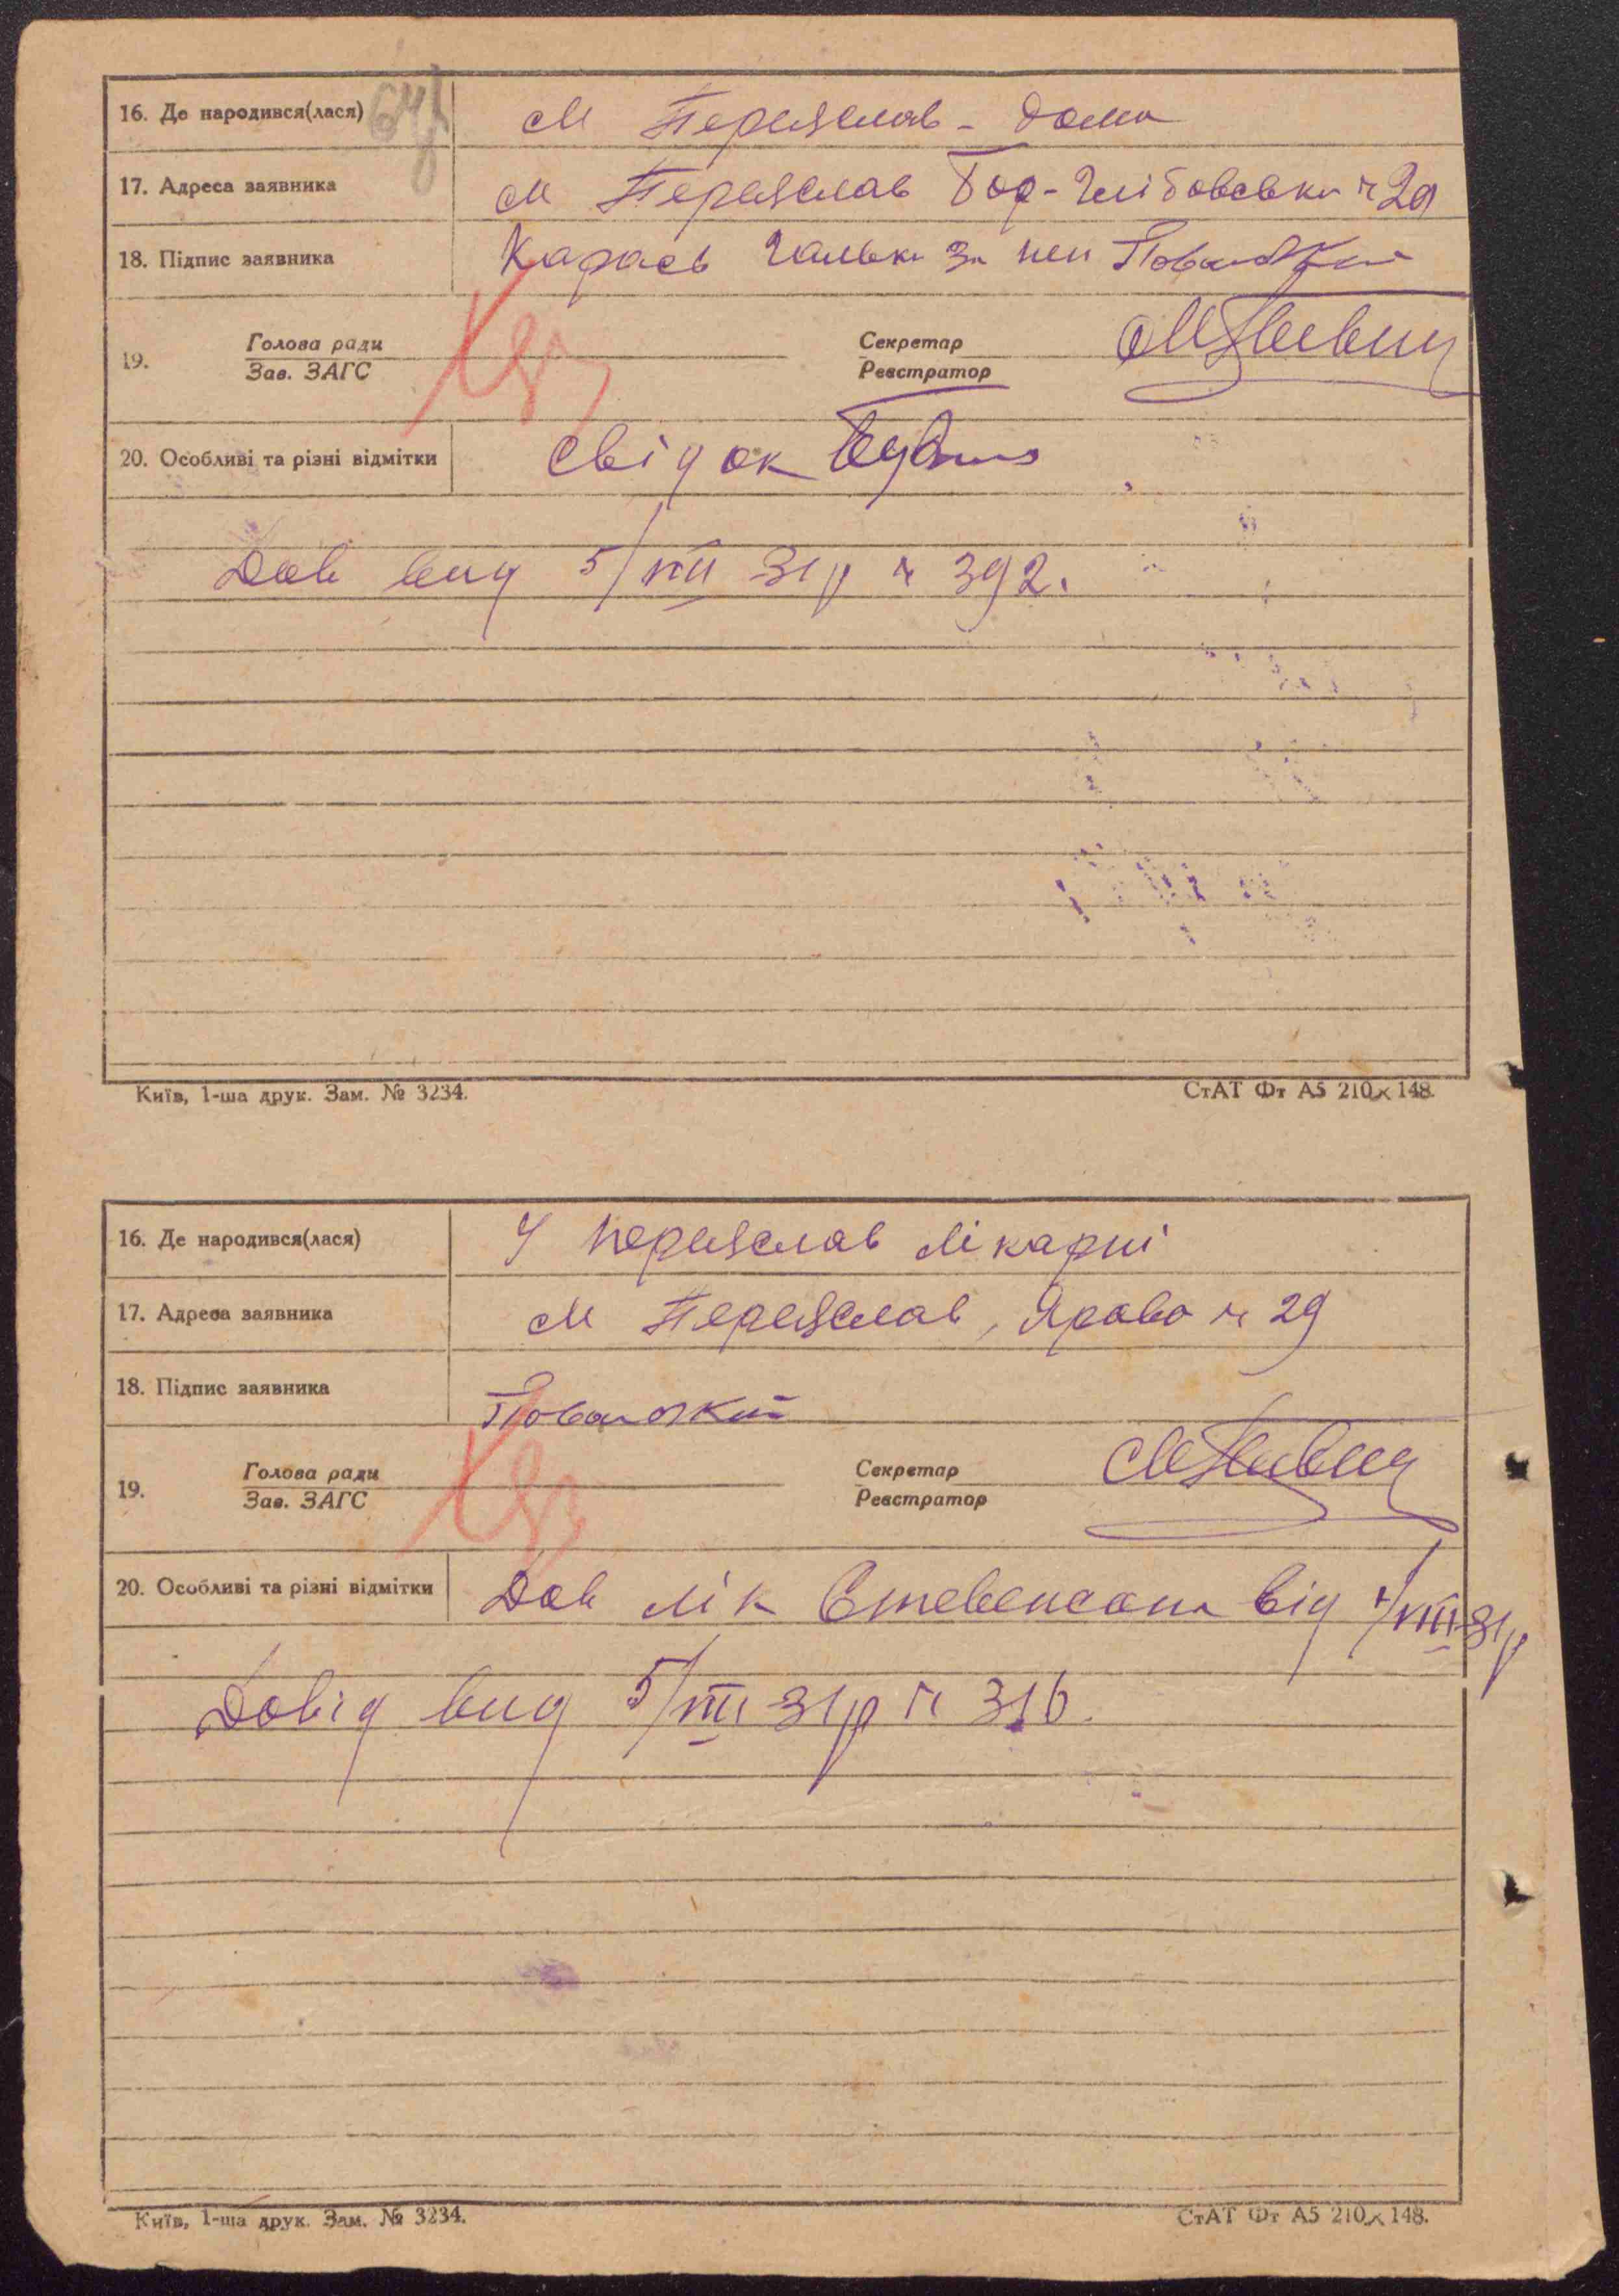 16. Де народився(лася) м Переяслав - дома
17. Адреса заявника м Переяслав Бор-Глібовська № 29
18. Підпис заявника Карась Галька за неп
19. Голова ради Секретар
Зав. ЗАГС Реєстратор
20. Особливі та різні відмітки Свідок
Дов вид 5/VIII 31р № 392.
Київ, 1-ша друк. Зам. № 3234. СтАТ Фт А5 210×148.
16. Де народився(лася) У Переяслав лікарні
17. Адреса заявника м Переяслав, Ярова № 29
18. Підпис заявника
19. Голова ради Секретар
Зав. ЗАГС Реєстратор
20. Особливі та різні відмітки Дов лік Стевенсона від /VIII 31р
Довід вид 5/VIII 31р № 316.
Київ, 1-ша друк. Зам. № 3234. СтАТ Фт А5 210×148.